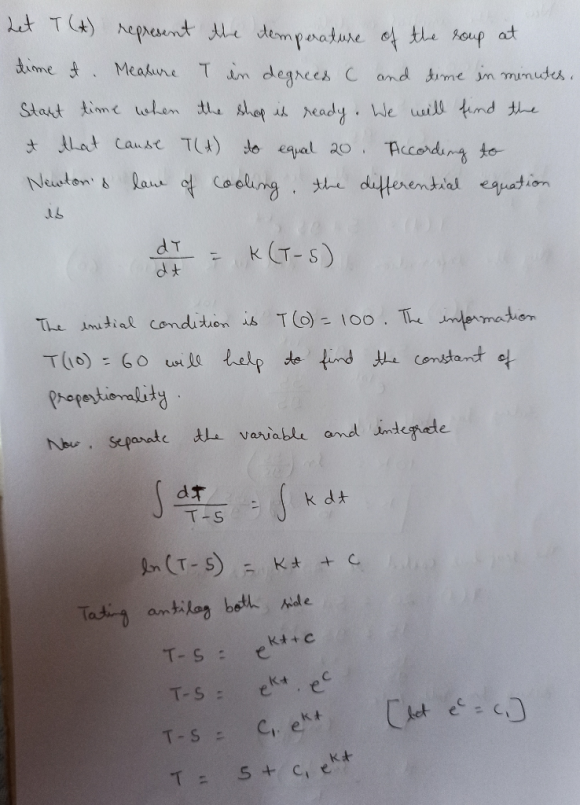 Let T(t) represent the temperature of the soup at
time t. Measure T in degrees C and time in minutes.
Start time when the shop is ready. We will find the
t that cause T(t) to equal 20. According to
Newton's law of cooling, the differential equation
is
dT/dt = K(T-5)
The initial condition is T(0) = 100. The information
T(10) = 60 will help to find the constant of
proportionality.
Now, separate the variable and integrate
∫ dT/(T-5) = ∫ K dt
ln(T-5) = Kt + C
Tating antilog both side
T-5 = e^(Kt+C)
T-5 = e^(Kt) . e^C
T-5 = C₁. e^(Kt) [let e^C = C₁]
T = 5 + C₁ e^(Kt)